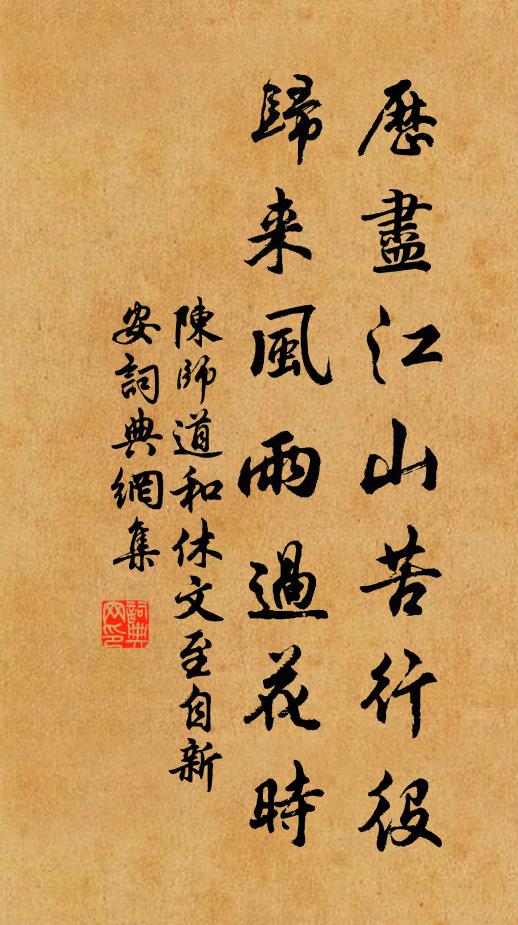 歷盡江山苦行役
歸来風雨過花時
陳師道和休文至自新
安詞典網集
詞典网印